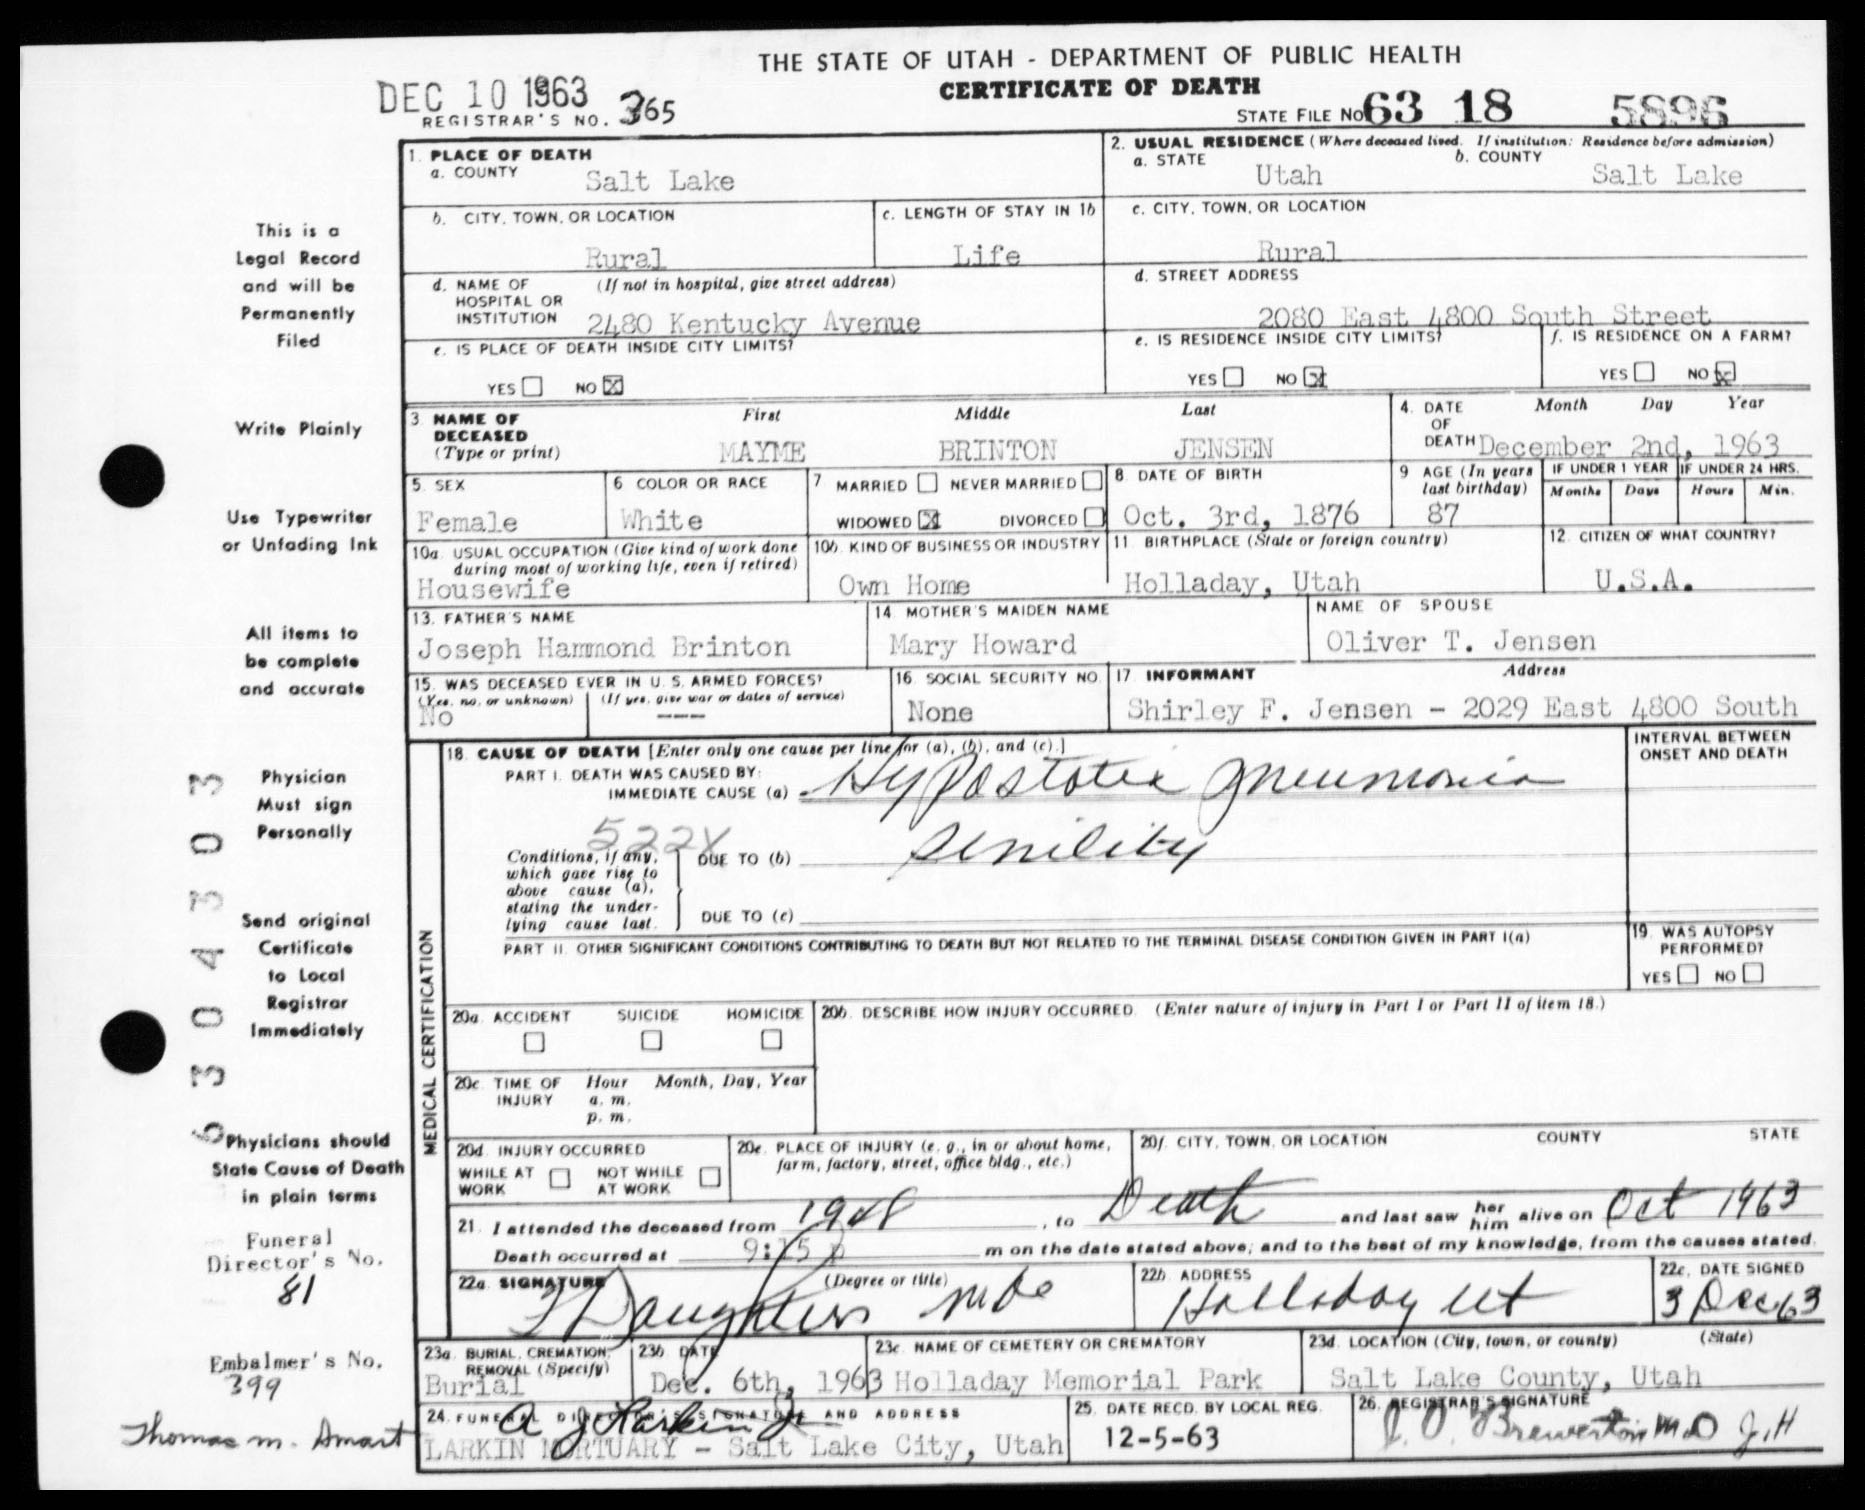 THE STATE OF UTAH - DEPARTMENT OF PUBLIC HEALTH
CERTIFICATE OF DEATH
DEC 10 1963
REGISTRAR'S NO. 365
STATE FILE NO 63 18 5896
1. PLACE OF DEATH
a. COUNTY Salt Lake
2. USUAL RESIDENCE (Where deceased lived. If institution: Residence before admission)
a. STATE Utah b. COUNTY Salt Lake
b. CITY, TOWN, OR LOCATION Rural
c. LENGTH OF STAY IN 1b Life
c. CITY, TOWN, OR LOCATION Rural
d. NAME OF HOSPITAL OR INSTITUTION (If not in hospital, give street address) 2480 Kentucky Avenue
d. STREET ADDRESS 2080 East 4800 South Street
e. IS PLACE OF DEATH INSIDE CITY LIMITS?
YES NO X
e. IS RESIDENCE INSIDE CITY LIMITS?
YES NO X
f. IS RESIDENCE ON A FARM?
YES NO X
3. NAME OF DECEASED (Type or print)
First Middle Last
MAYME BRINTON JENSEN
4. DATE OF DEATH Month Day Year
December 2nd, 1963
5. SEX Female
6 COLOR OR RACE White
7 MARRIED NEVER MARRIED
WIDOWED X DIVORCED
8 DATE OF BIRTH Oct. 3rd, 1876
9 AGE (In years last birthday) 87
IF UNDER 1 YEAR Months Days
IF UNDER 24 HRS. Hours Min.
10a. USUAL OCCUPATION (Give kind of work done during most of working life, even if retired) Housewife
10b. KIND OF BUSINESS OR INDUSTRY Own Home
11 BIRTHPLACE (State or foreign country) Holladay, Utah
12. CITIZEN OF WHAT COUNTRY? U.S.A.
13. FATHER'S NAME Joseph Hammond Brinton
14 MOTHER'S MAIDEN NAME Mary Howard
NAME OF SPOUSE Oliver T. Jensen
15. WAS DECEASED EVER IN U. S. ARMED FORCES?
(Yes, no, or unknown) (If yes, give war or dates of service)
No ---
16. SOCIAL SECURITY NO. None
17. INFORMANT Address
Shirley F. Jensen - 2029 East 4800 South
MEDICAL CERTIFICATION
18. CAUSE OF DEATH [Enter only one cause per line for (a), (b), and (c).]
INTERVAL BETWEEN ONSET AND DEATH
PART I. DEATH WAS CAUSED BY:
IMMEDIATE CAUSE (a) Hypostatic Pneumonia
522X
Conditions, if any, which gave rise to above cause (a), stating the underlying cause last.
DUE TO (b) Senility
DUE TO (c)
PART II. OTHER SIGNIFICANT CONDITIONS CONTRIBUTING TO DEATH BUT NOT RELATED TO THE TERMINAL DISEASE CONDITION GIVEN IN PART I(a)
19. WAS AUTOPSY PERFORMED?
YES NO
20a. ACCIDENT SUICIDE HOMICIDE
20b. DESCRIBE HOW INJURY OCCURRED. (Enter nature of injury in Part I or Part II of item 18.)
20c. TIME OF INJURY Hour Month, Day, Year
a. m.
p. m.
20d. INJURY OCCURRED
WHILE AT WORK NOT WHILE AT WORK
20e. PLACE OF INJURY (e. g., in or about home, farm, factory, street, office bldg., etc.)
20f. CITY, TOWN, OR LOCATION COUNTY STATE
21. I attended the deceased from 1948, to Death and last saw her him alive on Oct 1963
Death occurred at 9:15 p m on the date stated above; and to the best of my knowledge, from the causes stated.
22a. SIGNATURE (Degree or title)
Daughters MD
22b. ADDRESS Holladay Ut
22c. DATE SIGNED 3 Dec 63
23a. BURIAL, CREMATION, REMOVAL (Specify) Burial
23b. DATE Dec. 6th, 1963
23c. NAME OF CEMETERY OR CREMATORY Holladay Memorial Park
23d. LOCATION (City, town, or county) (State)
Salt Lake County, Utah
24. FUNERAL DIRECTOR'S SIGNATURE AND ADDRESS
A J Larkin Jr
LARKIN MORTUARY - Salt Lake City, Utah
25. DATE RECD. BY LOCAL REG. 12-5-63
26. REGISTRAR'S SIGNATURE
J. O. Brewerton M.D J.H
This is a
Legal Record
and will be
Permanently
Filed
Write Plainly
Use Typewriter
or Unfading Ink
All items to
be complete
and accurate
Physician
Must sign
Personally
Send original
Certificate
to Local
Registrar
Immediately
Physicians should
State Cause of Death
in plain terms
6 3 0 4 3 0 3
Funeral
Director's No.
81
Embalmer's No.
399
Thomas M. Smart